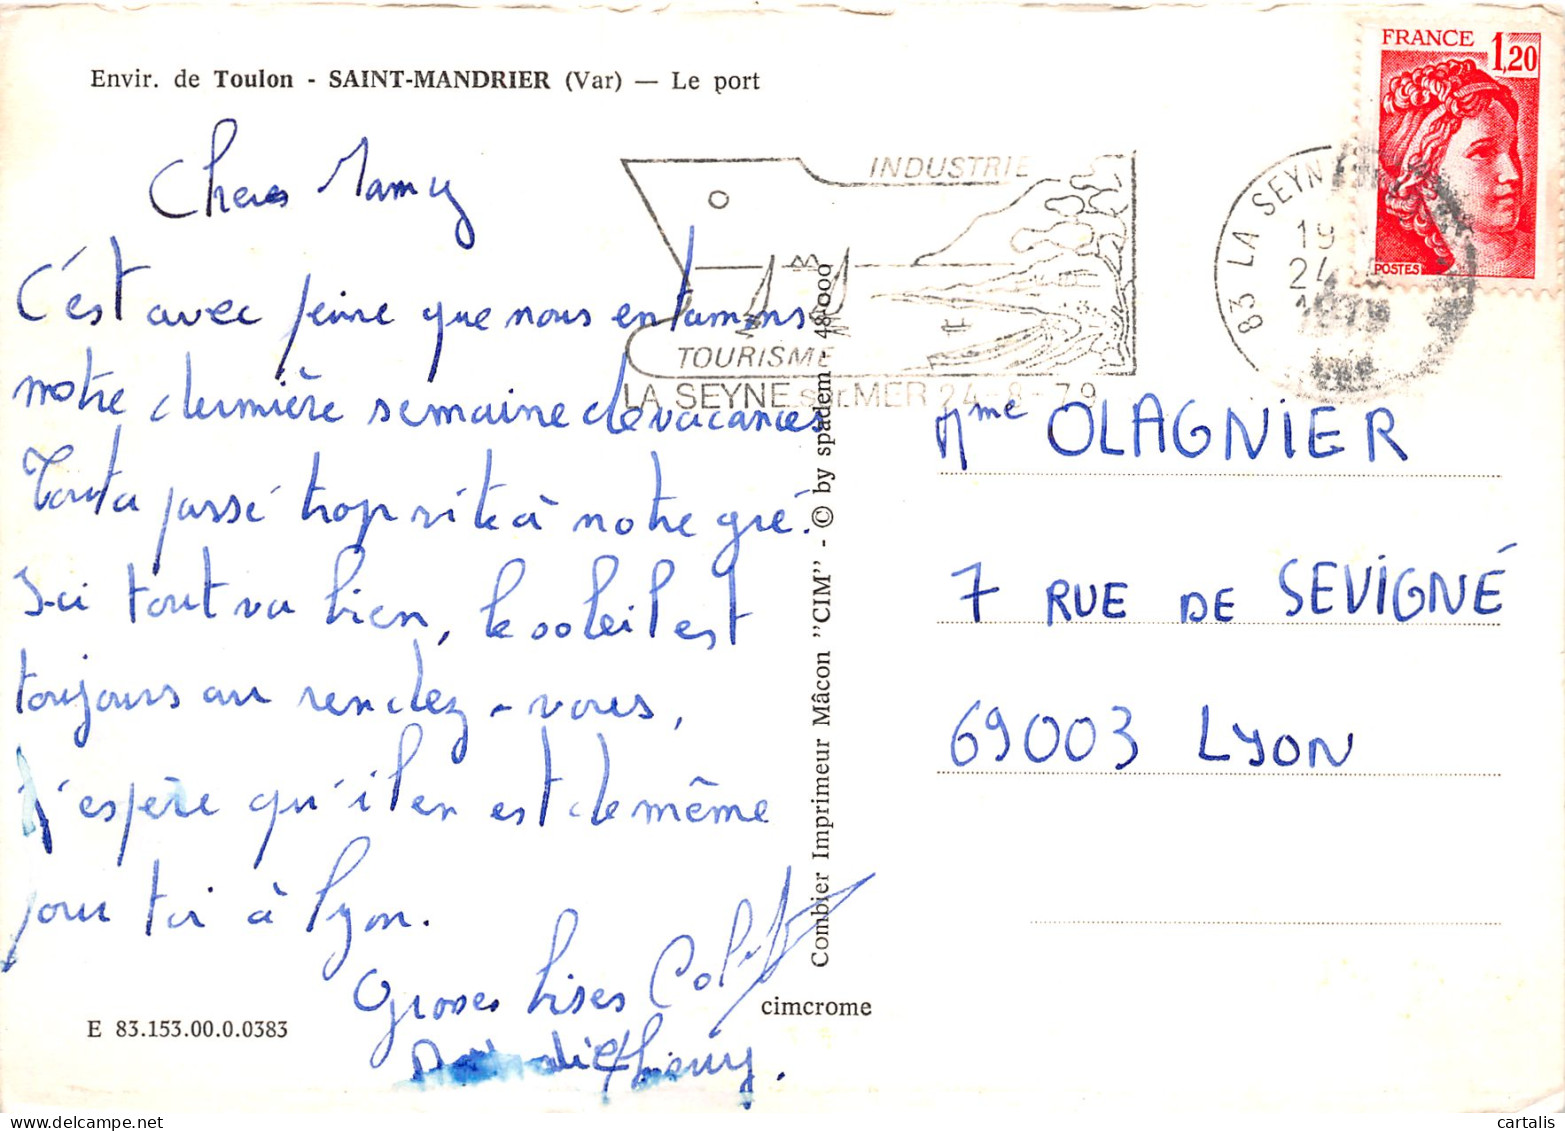 Envir. de Toulon - SAINT-MANDRIER (Var) — Le port
Cheres Mamy
C'est avec peine que nous entamons
notre dernière semaine de vacances
Tout a passé trop vite à notre gré.
Ici tout va bien, le soleil est
toujours au rendez-vous,
J'espère qu'il en est de même
pour toi à Lyon.
Grosses bises
Thierry.
E 83.153.00.0.0383
cimcrome
Combier Imprimeur Mâcon "CIM" - © by spadem 48-000
INDUSTRIE
TOURISME
LA SEYNE sur MER 24-8-79
83 LA SEYN
19
24
1979
FRANCE 1,20
POSTES
Mme OLAGNIER
7 RUE DE SEVIGNÉ
69003 LYON
cartalis
delcampe.net